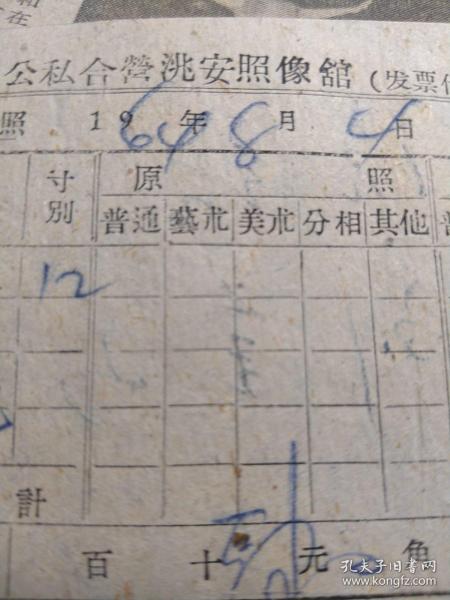 和
在
公私合營洮安照像舘(发票
照 1964年8月4日
寸別 原 照
普通 藝朮 美朮 分相 其他 普
12
計
百 十 元 角
孔夫子旧书网
www.kongfz.com